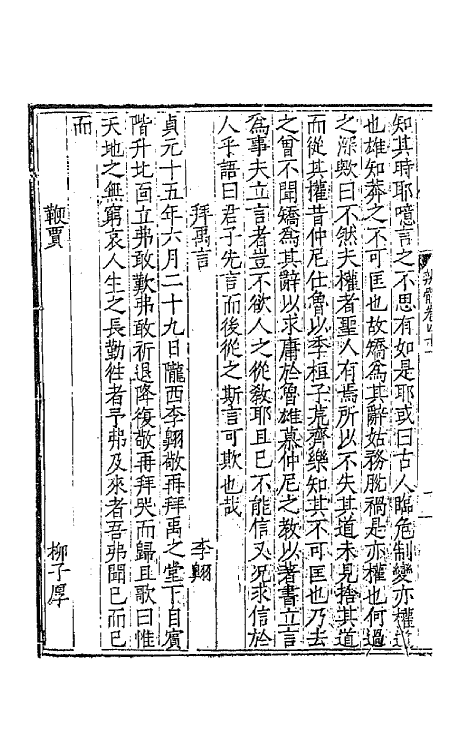 知其時耶噫言之不思有如是耶或曰古人臨危制變亦權道
也雄知莽之不可匡也故矯爲其辭姑務脫禍是亦權也何過
之深歟曰不然夫權者聖人有焉所以不失其道未見捨其道
而從其權昔仲尼仕魯以季桓子荒齊樂知其不可匡也乃去
之曾不聞矯爲其辭以求庸於魯雄慕仲尼之教以著書立言
爲事夫立言者豈不欲人之從教耶且已不能信又况求信於
人乎語曰君子先言而後從之斯言可欺也哉
拜禹言 李翱
貞元十五年六月二十九日隴西李翱敬再拜禹之堂下自賓
階升北面立弗敢歎弗敢祈退降復敬再拜哭而歸且歌曰惟
天地之無窮哀人生之長勤徃者予弗及來者吾弗聞已而已
而
鞭賈 柳子厚